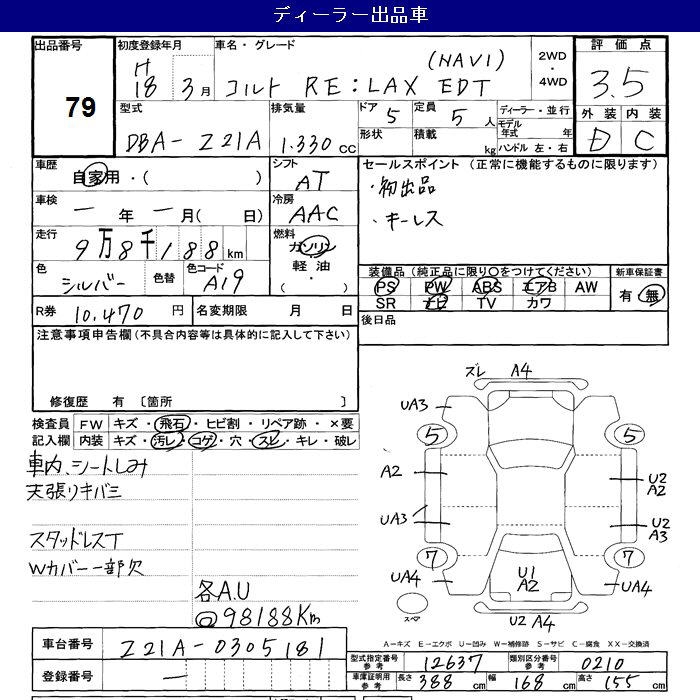 ディーラー出品車
出品番号
79
初度登録年月
H
18 3月
車名・グレード
(NAVI)
コルト RE:LAX EDT
2WD
・
4WD
評価点
3.5
外装 内装
D C
型式
DBA-Z21A
排気量
1.330 cc
ドア 5
定員 5 人
形状
積載 kg
ディーラー・並行
モデル年式 年
ハンドル 左・右
車歴
自家用・( )
シフト
AT
車検
ー 年 ー 月( 日)
冷房
AAC
走行
9万8千188 km
燃料
ガソリン
軽油
・
( )
色
シルバー
色替
色コード
A19
セールスポイント (正常に機能するものに限ります)
・初出品
・キーレス
装備品 (純正品に限り○をつけてください)
PS PW ABS エアB AW
SR ナビ TV カワ
新車保証書
有・無
R券 10,470 円
名変期限 月 日
後日品
注意事項申告欄(不具合内容等は具体的に記入して下さい)
修復歴 有 〔箇所 〕
検査員 FW キズ・飛石・ヒビ割・リペア跡・×要
記入欄 内装 キズ・汚レ・コゲ・穴・スレ・キレ・破レ
車内、シートしみ
天張りキバミ
スタッドレスT
Wカバー一部欠
各A.U
@98188Km
ズレ A4
UA3
5 5
A2
U2
A2
UA3
U2
A3
7 7
UA4
U1
A2
UA4
スペア
U2 A4
A-キズ E-エクボ U-凹み W-補修跡 S-サビ C-腐食 XX-交換済
車台番号 Z21A-0305181
登録番号 ー
型式指定番号 参考 12637
類別区分番号 参考 0210
車庫証明用 参考 長さ 388 cm 幅 168 cm 高さ 155 cm